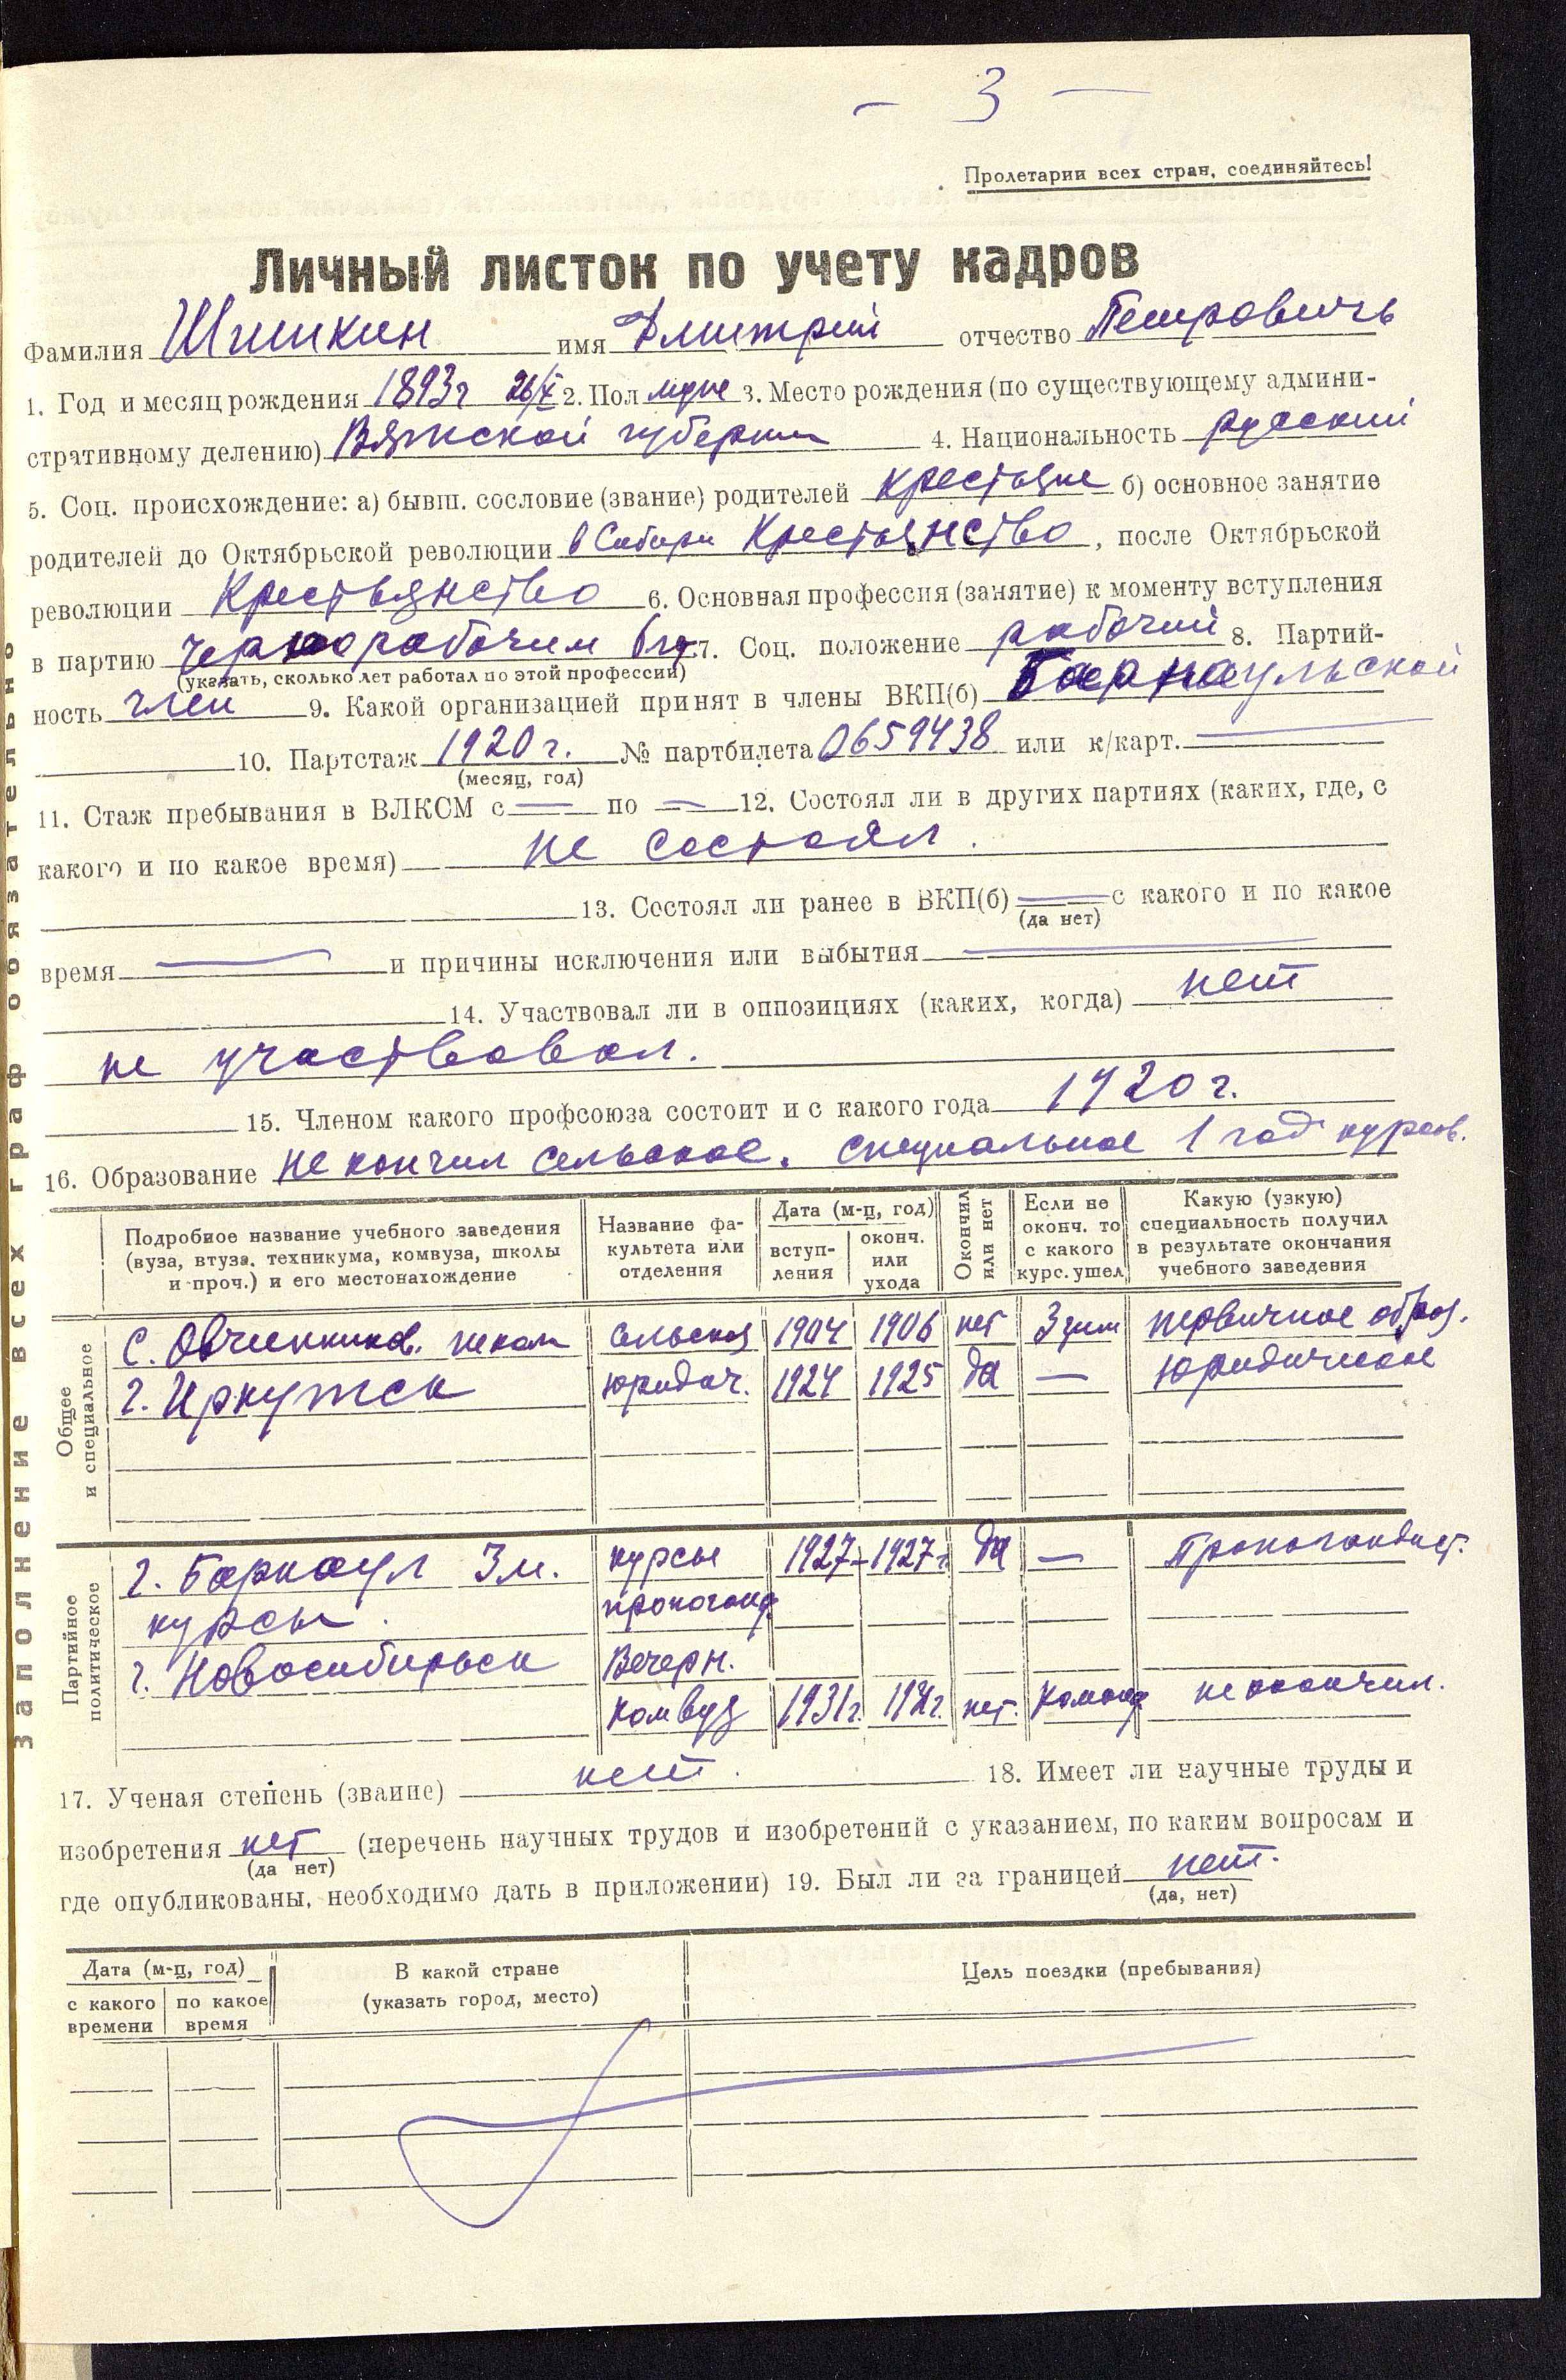 - 3 -
Пролетарии всех стран, соединяйтесь!
Личный листок по учету кадров
Фамилия Шишкин имя Дмитрий отчество Петровичь
1. Год и месяц рождения 1893г 26/X 2. Пол муже 3. Место рождения (по существующему админи-
стративному делению) Вятской губернии 4. Национальность русский
5. Соц. происхождение: а) бывш. сословие (звание) родителей крестьяне б) основное занятие
родителей до Октябрьской революции в Сибири Крестьянство, после Октябрьской
революции Крестьянство 6. Основная профессия (занятие) к моменту вступления
в партию чернорабочим 7. Соц. положение рабочий 8. Партий-
(указать, сколько лет работал по этой профессии)
ность член 9. Какой организацией принят в члены ВКП(б) Барнаульской
10. Партстаж 1920 г. № партбилета 0659438 или к/карт. —
(месяц, год)
11. Стаж пребывания в ВЛКСМ с — по — 12. Состоял ли в других партиях (каких, где, с
какого и по какое время) не состоял.
13. Состоял ли ранее в ВКП(б) — с какого и по какое
(да нет)
время — и причины исключения или выбытия —
14. Участвовал ли в оппозициях (каких, когда) нет
не участвовал.
15. Членом какого профсоюза состоит и с какого года 1920 г.
16. Образование не кончил сельское. специальное 1 год курсов.
Подробное название учебного заведения (вуза, втуза, техникума, комвуза, школы и проч.) и его местонахождение
Название факультета или отделения
Дата (м-ц, год)
вступ-ления
оконч. или ухода
Окончил или нет
Если не оконч. то с какого курс. ушел
Какую (узкую) специальность получил в результате окончания учебного заведения
Общее и специальное
с. Овчинников. сельская 1904 1906 нет 3 зим первичное образ.
г. Иркутск юридич. 1924 1925 да — юридическое
Партийное политическое
г. Барнаул 3 м. курсы 1927 - 1927 г. да — Пропогандист.
курсы. пропоганд.
г. Новосибирьск Вечерн.
Комвуз 1931г. нет. Команд не окончил.
17. Ученая степень (звание) нет. 18. Имеет ли научные труды и
изобретения нет (перечень научных трудов и изобретений с указанием, по каким вопросам и
(да нет)
где опубликованы, необходимо дать в приложении) 19. Был ли за границей нет.
(да, нет)
Дата (м-ц, год)
с какого времени
по какое время
В какой стране
(указать город, место)
Цель поездки (пребывания)
Заполнение всех граф обязательно